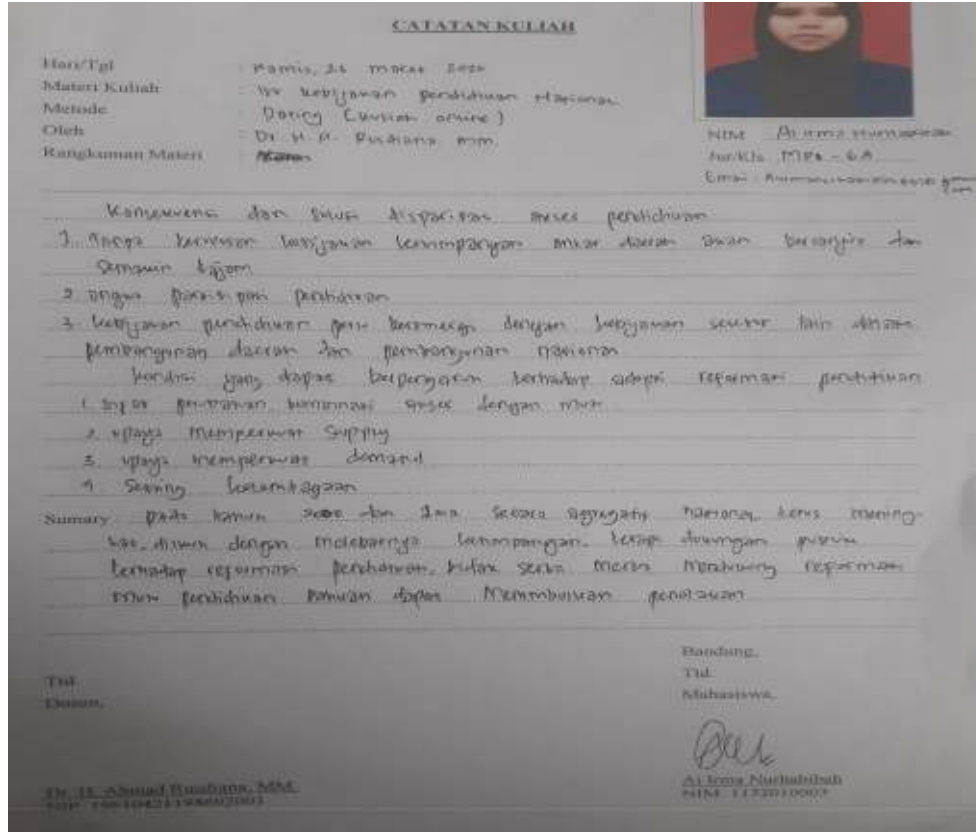 CATATAN KULIAH
Hari/Tgl : Kamis, 26 maret 2020
Materi Kuliah : kebijakan pendidikan Nasional
Metode : Daring (kuliah online)
Oleh : Dr. H. A. Rusdiana, mm.
Rangkuman Materi :
NIM
Jur/Kls : MPI - 6A
Email :
Konsekuensi dan solusi disparitas akses pendidikan
1. kebijakan ketimpangan antar daerah akan berlanjut dan
semakin tajam
2. angka partisipasi pendidikan
3. kebijakan pendidikan perlu bersinergi dengan kebijakan sektor lain dalam
pembangunan daerah dan pembangunan nasional
kondisi yang dapat berpengaruh terhadap adopsi reformasi pendidikan
1. sifat perubahan, kombinasi akses dengan mutu
2. upaya memperkuat supply
3. upaya memperkuat demand
4. Setting kelembagaan
Sumary : pada tahun dan secara agregatif nasional terus mening-
kat, dengan ketimpangan. tetapi dukungan
terhadap reformasi pendidikan, tidak serta merta mendukung reformasi
mutu pendidikan bahkan dapat menimbulkan penolakan
Bandung,
Ttd
Mahasiswa,
Ttd
Dosen,
Dr. H. Ahmad Rusdiana, MM.
Ai Irma Nurhabibah
NIM. 1172010003